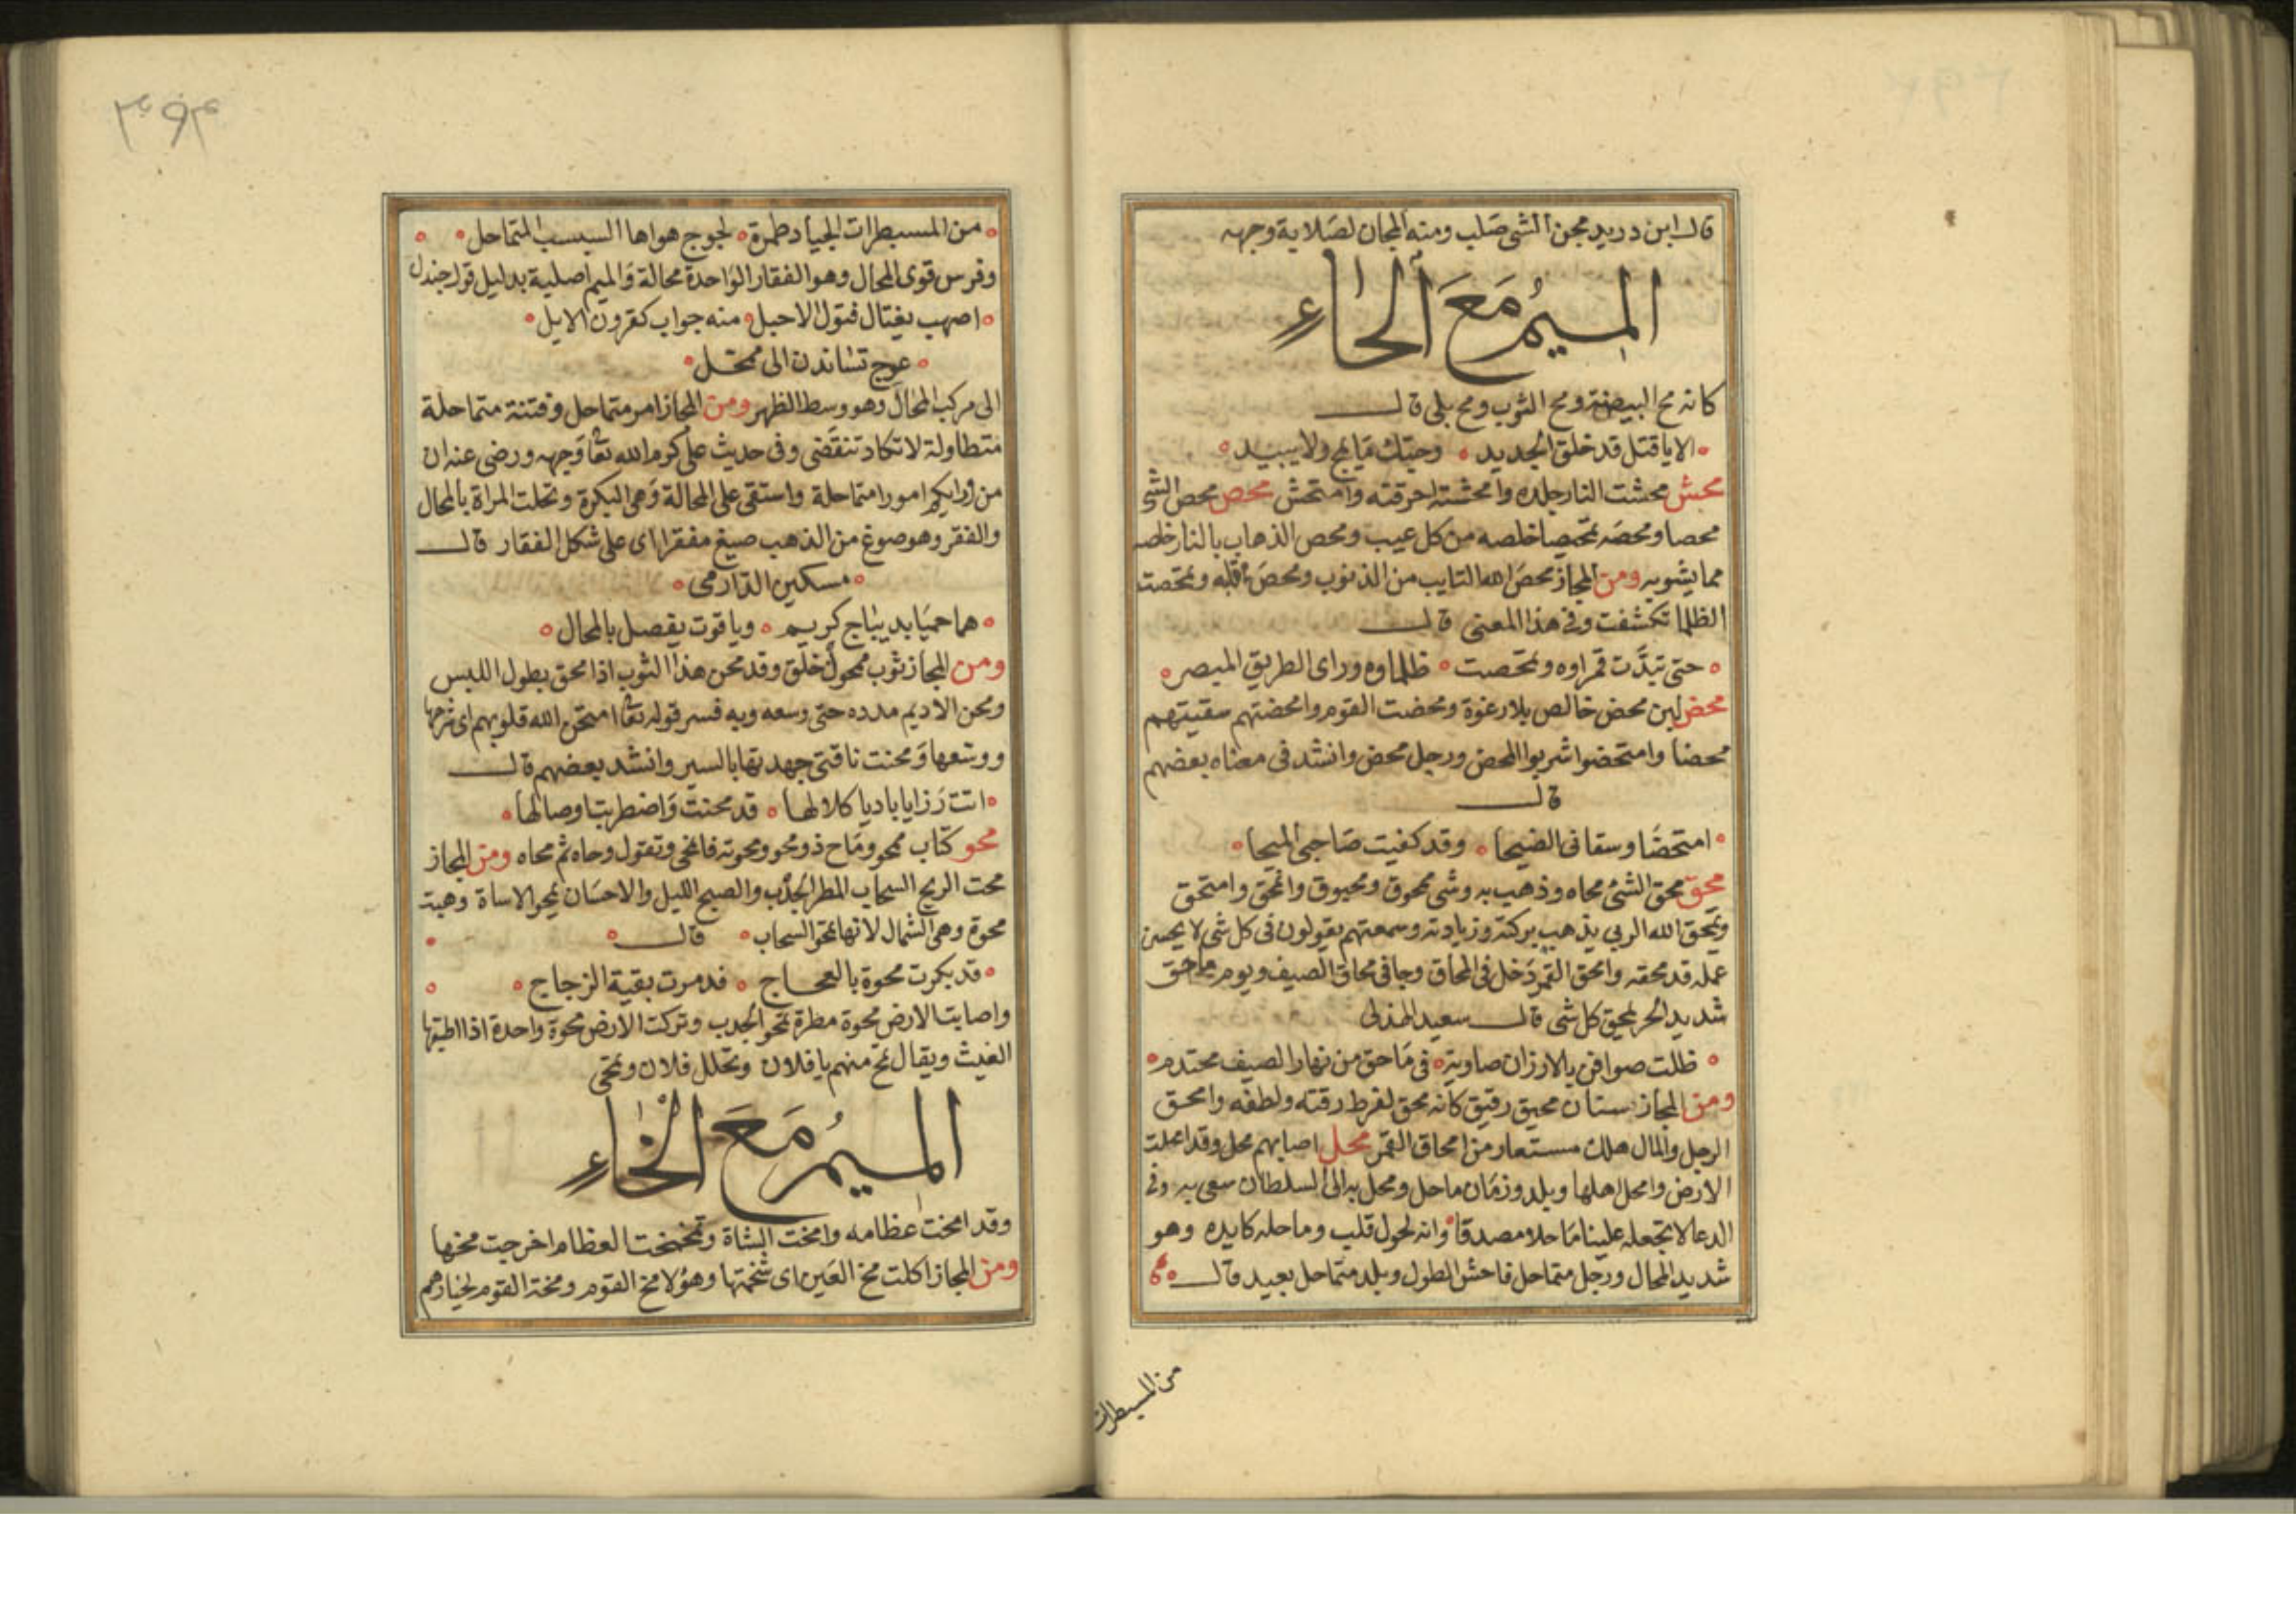 قال ابن دريد مجن الشى صلب ومنه المجان لصلابة وجهه
الميم مع الحاء
كانه مح البيضة ومح الثوب ومح بلى قال
الا يا قتل قد خلق الجديد وحبك ما يمح ولا يبيد
محش محشت النار جلده وامحشته احرقته وامتحش محص محص الشى
محصا ومحصه تمحيصا خلصه من كل عيب ومحص الذهاب بالنار خلصه
مما يشوبه ومن المجاز محص الله التايب من الذنوب ومحص قلبه وتمحصت
الظلما تكشفت وفى هذا المعنى قال
حتى تبدت قمراوه وتمحصت ظلماوه وراى الطريق المبصر
محض لبن محض خالص بلا رغوة ومحضت القوم وامحضتهم سقيتهم
محضا وامتحضوا شربوا المحض ورجل محض وانشد فى معناه بعضهم
قال
امتحضا وسقانى الضيحا وقد كفيت صاحبى الميحا
محق محق الشئ محاه وذهب به وشى ممحوق ومحيوق وانمحق وامتحق
ويمحق الله الربى يذهب بركته وزيادته وسمعتهم يقولون فى كل شى لا يحسن
عمله قد محقه وامحق القمر دخل فى المحاق وجا فى محاق الصيف ويوم ماحق
شديد الحر يمحق كل شى قال سعيد الهذلى
ظلت صوافن بالارزان صاوية فى ماحق من نهار الصيف محتدم
ومن المجاز ستان محيق رقيق كانه محق لفرط رقته ولطفه وامحق
الرجل والمال هلك مستعار من امحاق القمر محل اصابهم محل وقد امحلت
الارض وامحل اهلها وبلد وزمان ماحل ومحل به الى السلطان سعى به وفى
الدعا لا تجعله علينا ماحلا مصدقا وانه لحول قلب وماحله كايده وهو
شديد المحال ورجل متماحل فاحش الطول وبلد متماحل بعيد قال
من المسبطرات
٣٩٣
من المسبطرات الجياد طمرة لجوج هواها السبسب المتماحل
وفرس قوى المحال وهو الفقار الواحدة محالة والميم اصلية بدليل قول جندل
اصهب يغتال فتول الاحبل منه جواب كقرون الايل
عوج تساندن الى ممحل
الى مركب المحال وهو وسط الظهر ومن المجاز امر متماحل وفتنة متماحلة
متطاولة لا تكاد تنقضى وفى حديث على كرم الله تعا وجهه ورضى عنه ان
من ورايكم امورا متماحلة واستقى على المحالة وهى البكرة وتحلت المراة بالمحال
والفقر وهو صوغ من الذهب صيغ مفقرا اى على شكل الفقار قال
مسكين الدارمى
هما حميا بديباج كريم وياقوت يفصل بالمحال
ومن المجاز ثوب ممحول خلق وقد محن هذا الثوب اذا محق بطول اللبس
ومحن الاديم مدده حتى وسعه وبه فسر قوله تعا امتحن الله قلوبهم اى شرحها
ووسعها ومحنت ناقتى جهدتها بالسير وانشد بعضهم قال
اتت رزايا باديا كلالها قد محنت واضطربت اوصالها
محو كتاب ممحو وماح ذو محو ومحوته فامحى وتقول وحاه ثم محاه ومن المجاز
محت الريح السحاب المطر الجدب والصبح الليل والاحسان يمحو الاساة وهبت
محوة وهى الشمال لانها تمحو السحاب قال
قد بكرت محوة بالعجاج فدمرت بقية الزجاج
واصابت الارض محوة مطرة تمحو الجدب وتركت الارض محوة واحدة اذا طبقها
الغيث ويقال تمح منهم يا فلان وتحلل فلان وتمحى
الميم مع الخاء
وقد امخت عظامه وامخت الشاة وتمخخت العظام اخرجت مخها
ومن المجاز اكلت مخ العين اى شحمتها وهؤلا مخ القوم ومخة القوم لخيارهم